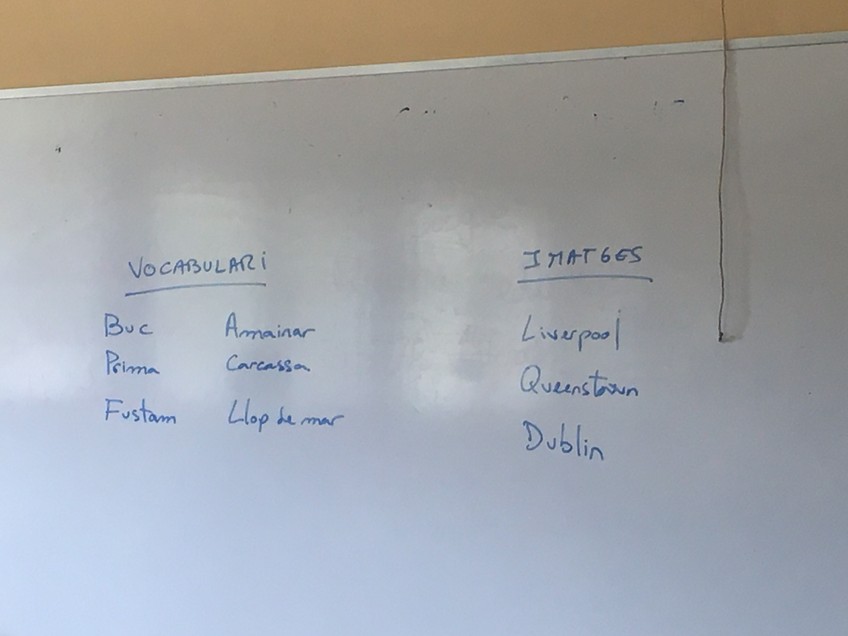 VOCABULARI
Buc Amainar
Prima Carcassa
Fustam Llop de mar
IMATGES
Liverpool
Queenstown
Dublin